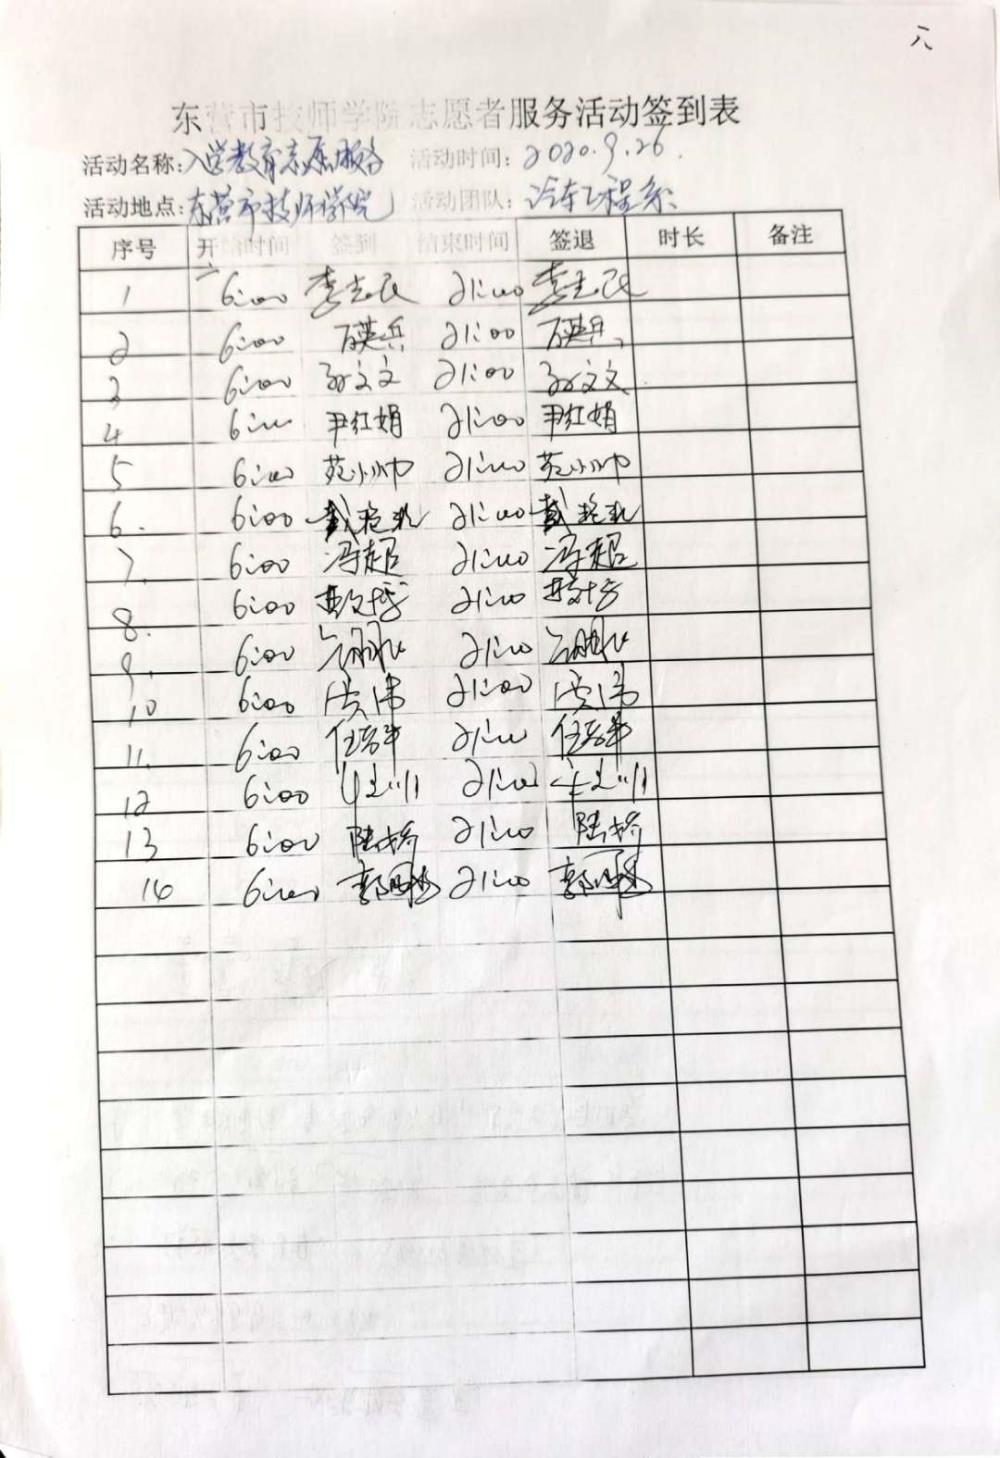 八
东营市技师学院志愿者服务活动签到表
活动名称:入学教育志愿服务 活动时间:2020.9.26.
活动地点:东营市技师学院 活动团队:汽车工程系
序号 开始时间 签到 结束时间 签退 时长 备注
1 6:00 李志民 21:00 李志民
2 6:00 英兵 21:00 英兵
3 6:00 孙文文 21:00 孙文文
4 6:00 尹红娟 21:00 尹红娟
5 6:00 苑小帅 21:00 苑小帅
6. 6:00 戴 21:00 戴
7. 6:00 冯超 21:00 冯超
8. 6:00 21:00
9. 6:00 21:00
10 6:00 洪伟 21:00 洪伟
11. 6:00 任 21:00 任
12 6:00 21:00
13 6:00 陆桥 21:00 陆桥
14 6:00 郭 21:00 郭